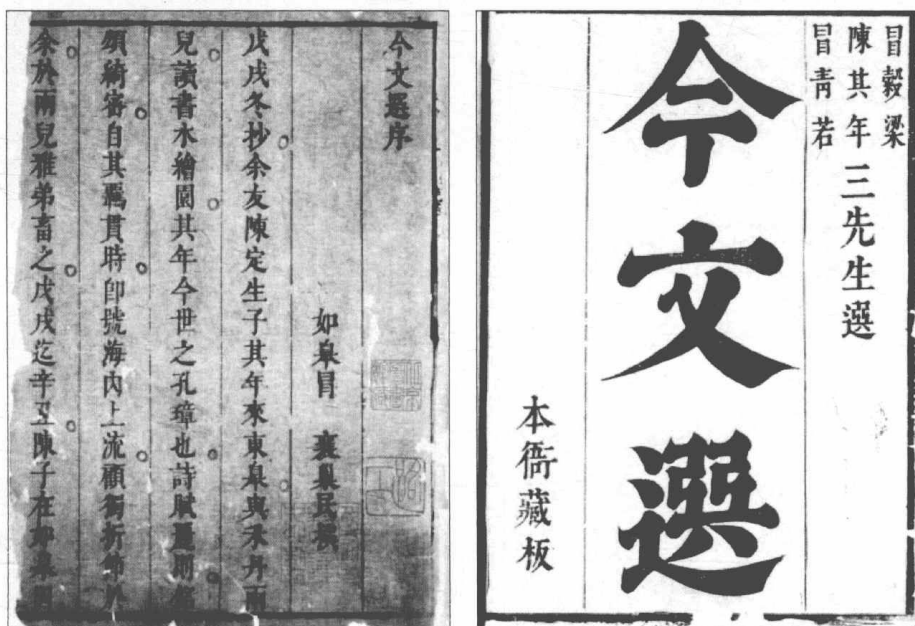 冒穀梁
陳其年三先生選
冒青若
今文選
本衙藏板
今文選序
如皋冒 襄巢民撰
戊戌冬抄余友陳定生子其年來東皋與禾丹兩
兒讀書水繪園其年今世之孔璋也詩賦麗則
頌綺密自其羈貫時即號海內上流顧獨折節於
余於兩兒雅弟畜之戊戌迄辛丑陳子在如皋